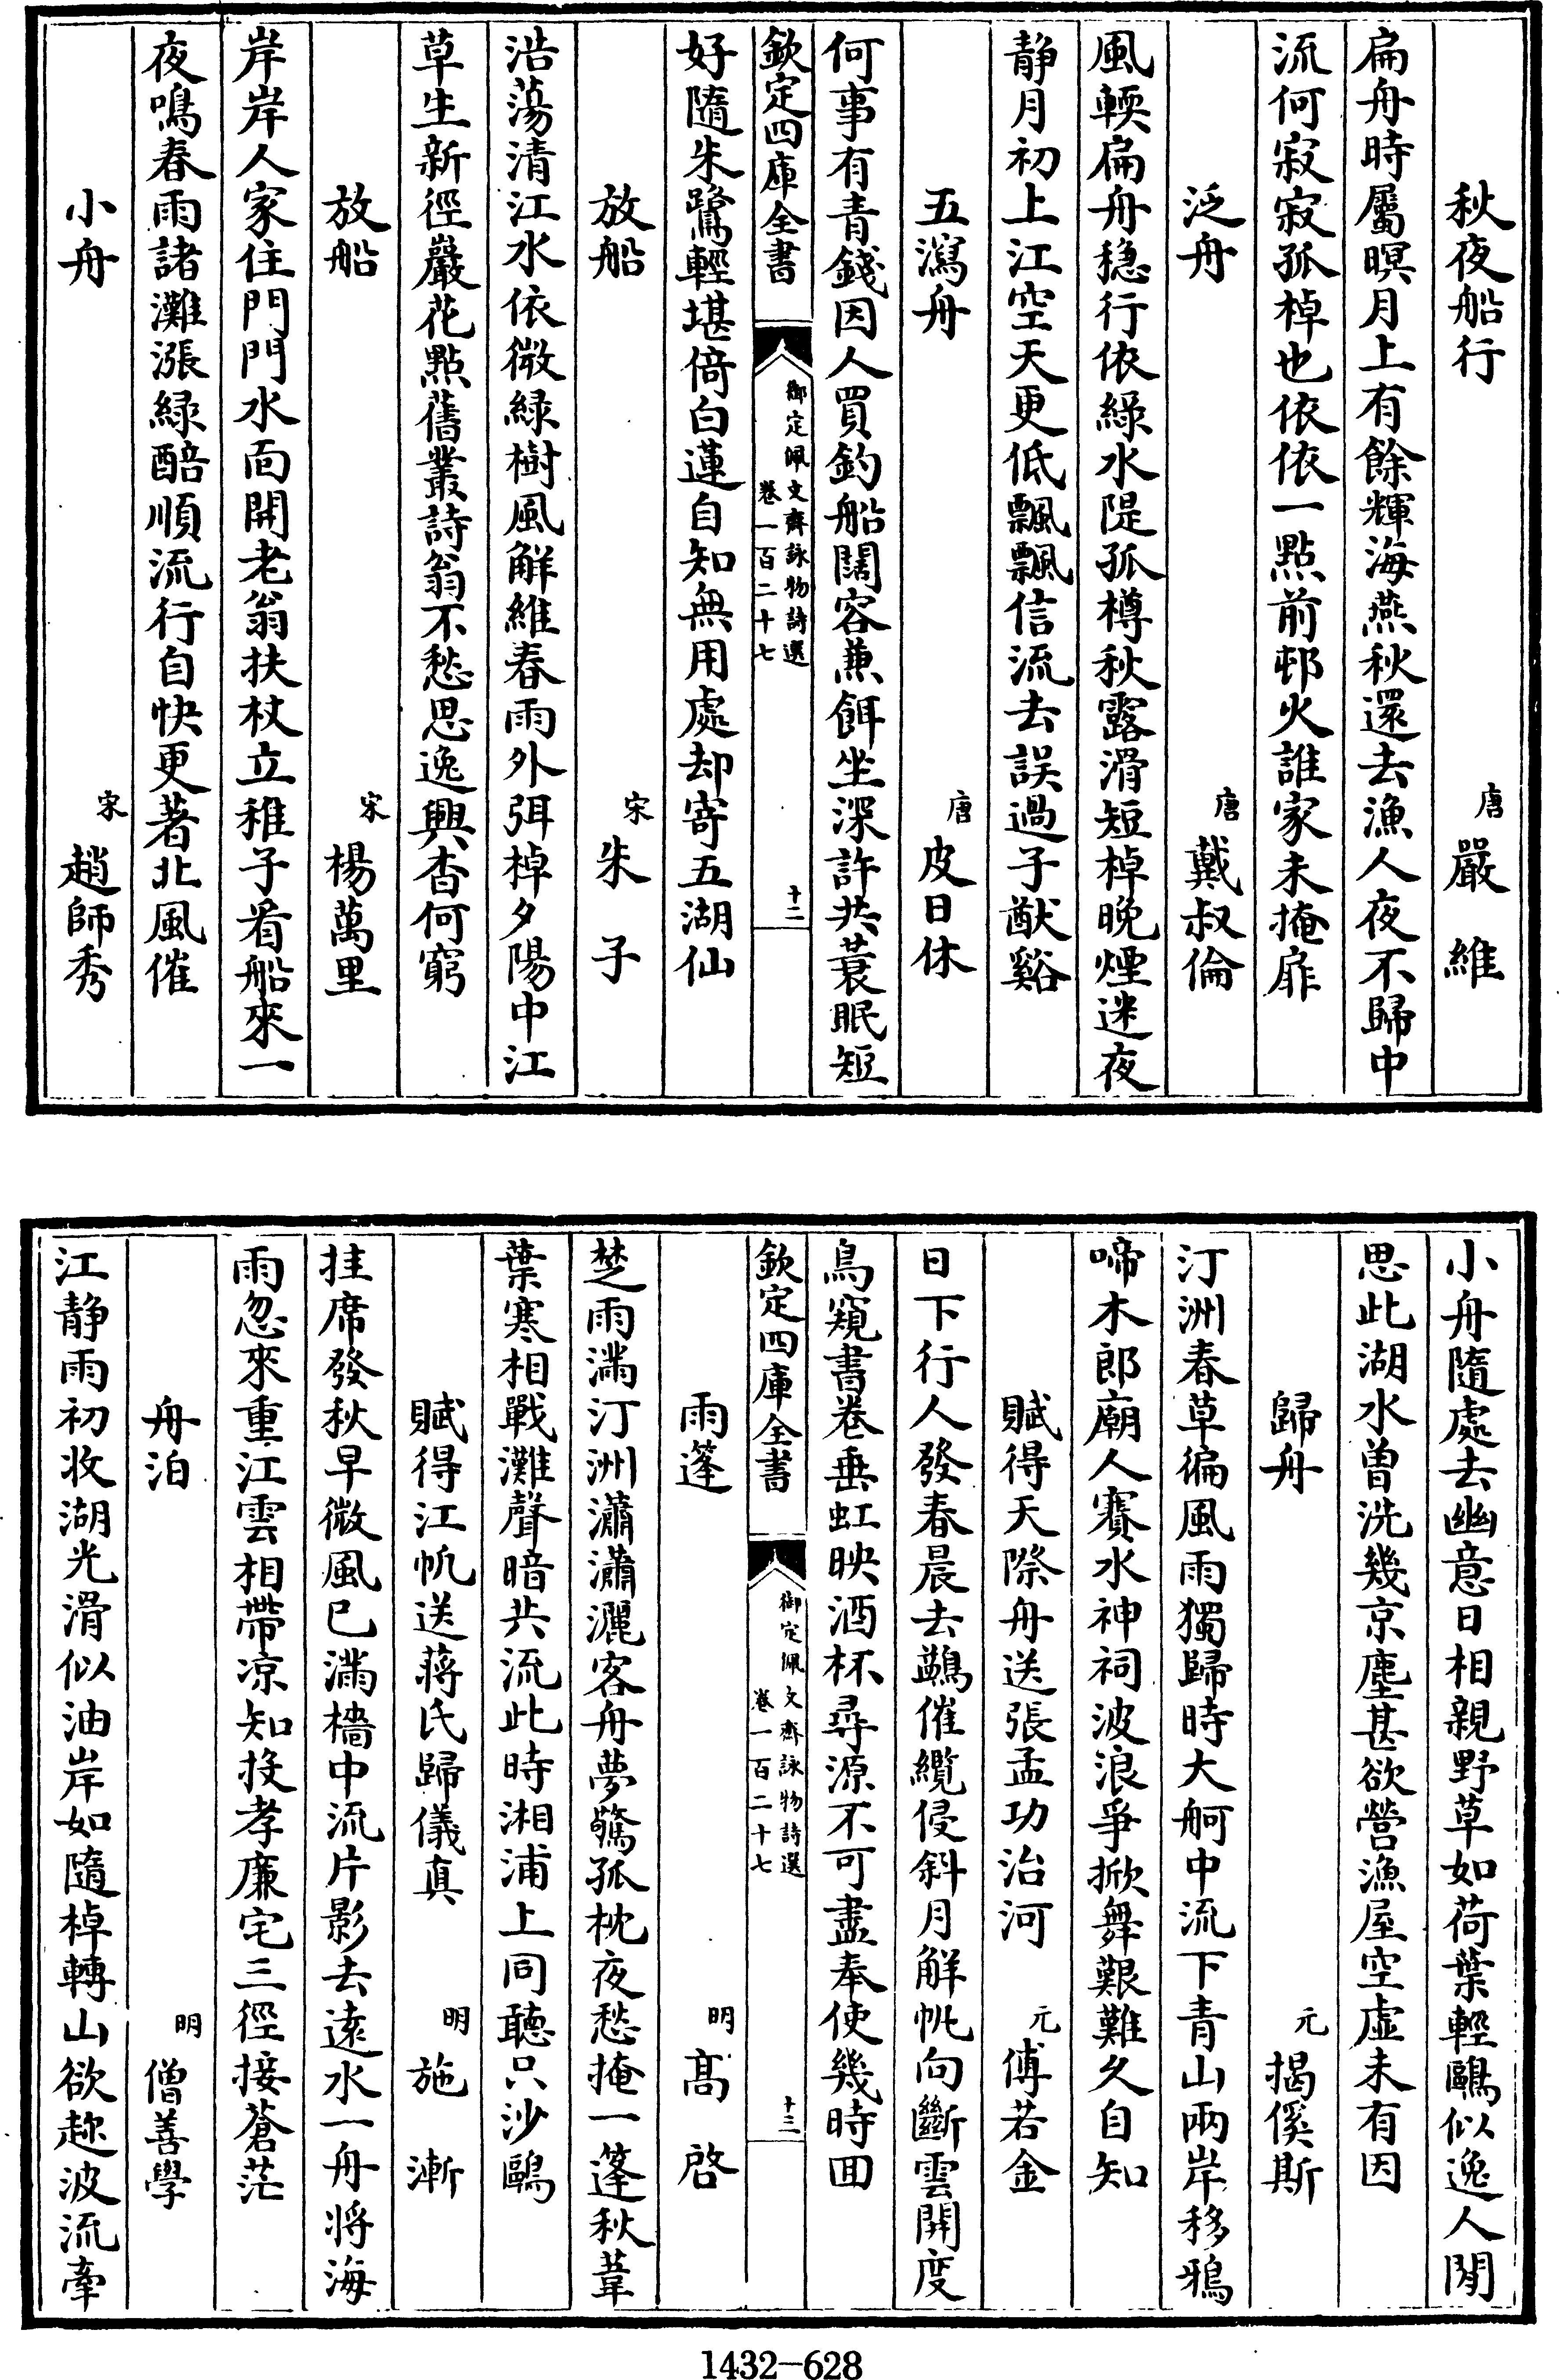 秋夜船行　唐　嚴維
扁舟時屬暝月上有餘輝海燕秋還去漁人夜不歸中
流何寂寂孤棹也依依一點前邨火誰家未掩扉
泛舟　唐　戴叔倫
風輭扁舟穏行依綠水隄孤樽秋露滑短棹晩煙迷夜
静月初上江空天更低飄飄信流去誤過子猷谿
五瀉舟　唐　皮日休
何事有青錢因人買釣船闊容兼餌坐深許共蓑眠短
欽定四庫全書
御定佩文齋詠物詩選
卷一百二十七
十二
好隨朱鷺輕堪倚白蓮自知無用處却寄五湖仙
放船　宋　朱子
浩蕩清江水依微緑樹風解維春雨外弭棹夕陽中江
草生新徑巖花點舊叢詩翁不愁思逸興杳何窮
放船　宋　楊萬里
岸岸人家住門門水面開老翁扶杖立稚子看船來一
夜鳴春雨諸灘漲緑醅順流行自快更著北風催
小舟　宋　趙師秀
小舟隨處去幽意日相親野草如荷葉輕鷗似逸人閒
思此湖水曽洗幾京塵甚欲營漁屋空虛未有因
歸舟　元　揭傒斯
汀洲春草徧風雨獨歸時大舸中流下青山兩岸移鴉
啼木郎廟人賽水神祠波浪爭掀舞艱難久自知
賦得天際舟送張孟功治河　元　傅若金
日下行人發春晨去鷁催纜侵斜月解帆向斷雲開度
鳥窺書卷垂虹映酒杯尋源不可盡奉使幾時回
欽定四庫全書
御定佩文齋詠物詩選
卷一百二十七
十三
雨篷　明　髙啓
楚雨滿汀洲瀟瀟灑客舟夢驚孤枕夜愁掩一篷秋葦
葉寒相戰灘聲暗共流此時湘浦上同聽只沙鷗
賦得江帆送蔣氏歸儀真　明　施漸
挂席發秋早微風已滿檣中流片影去遠水一舟将海
雨忽來重江雲相帶凉知投孝廉宅三徑接蒼茫
舟泊　明　僧善學
江静雨初收湖光滑似油岸如隨棹轉山欲趂波流牽
1432—628